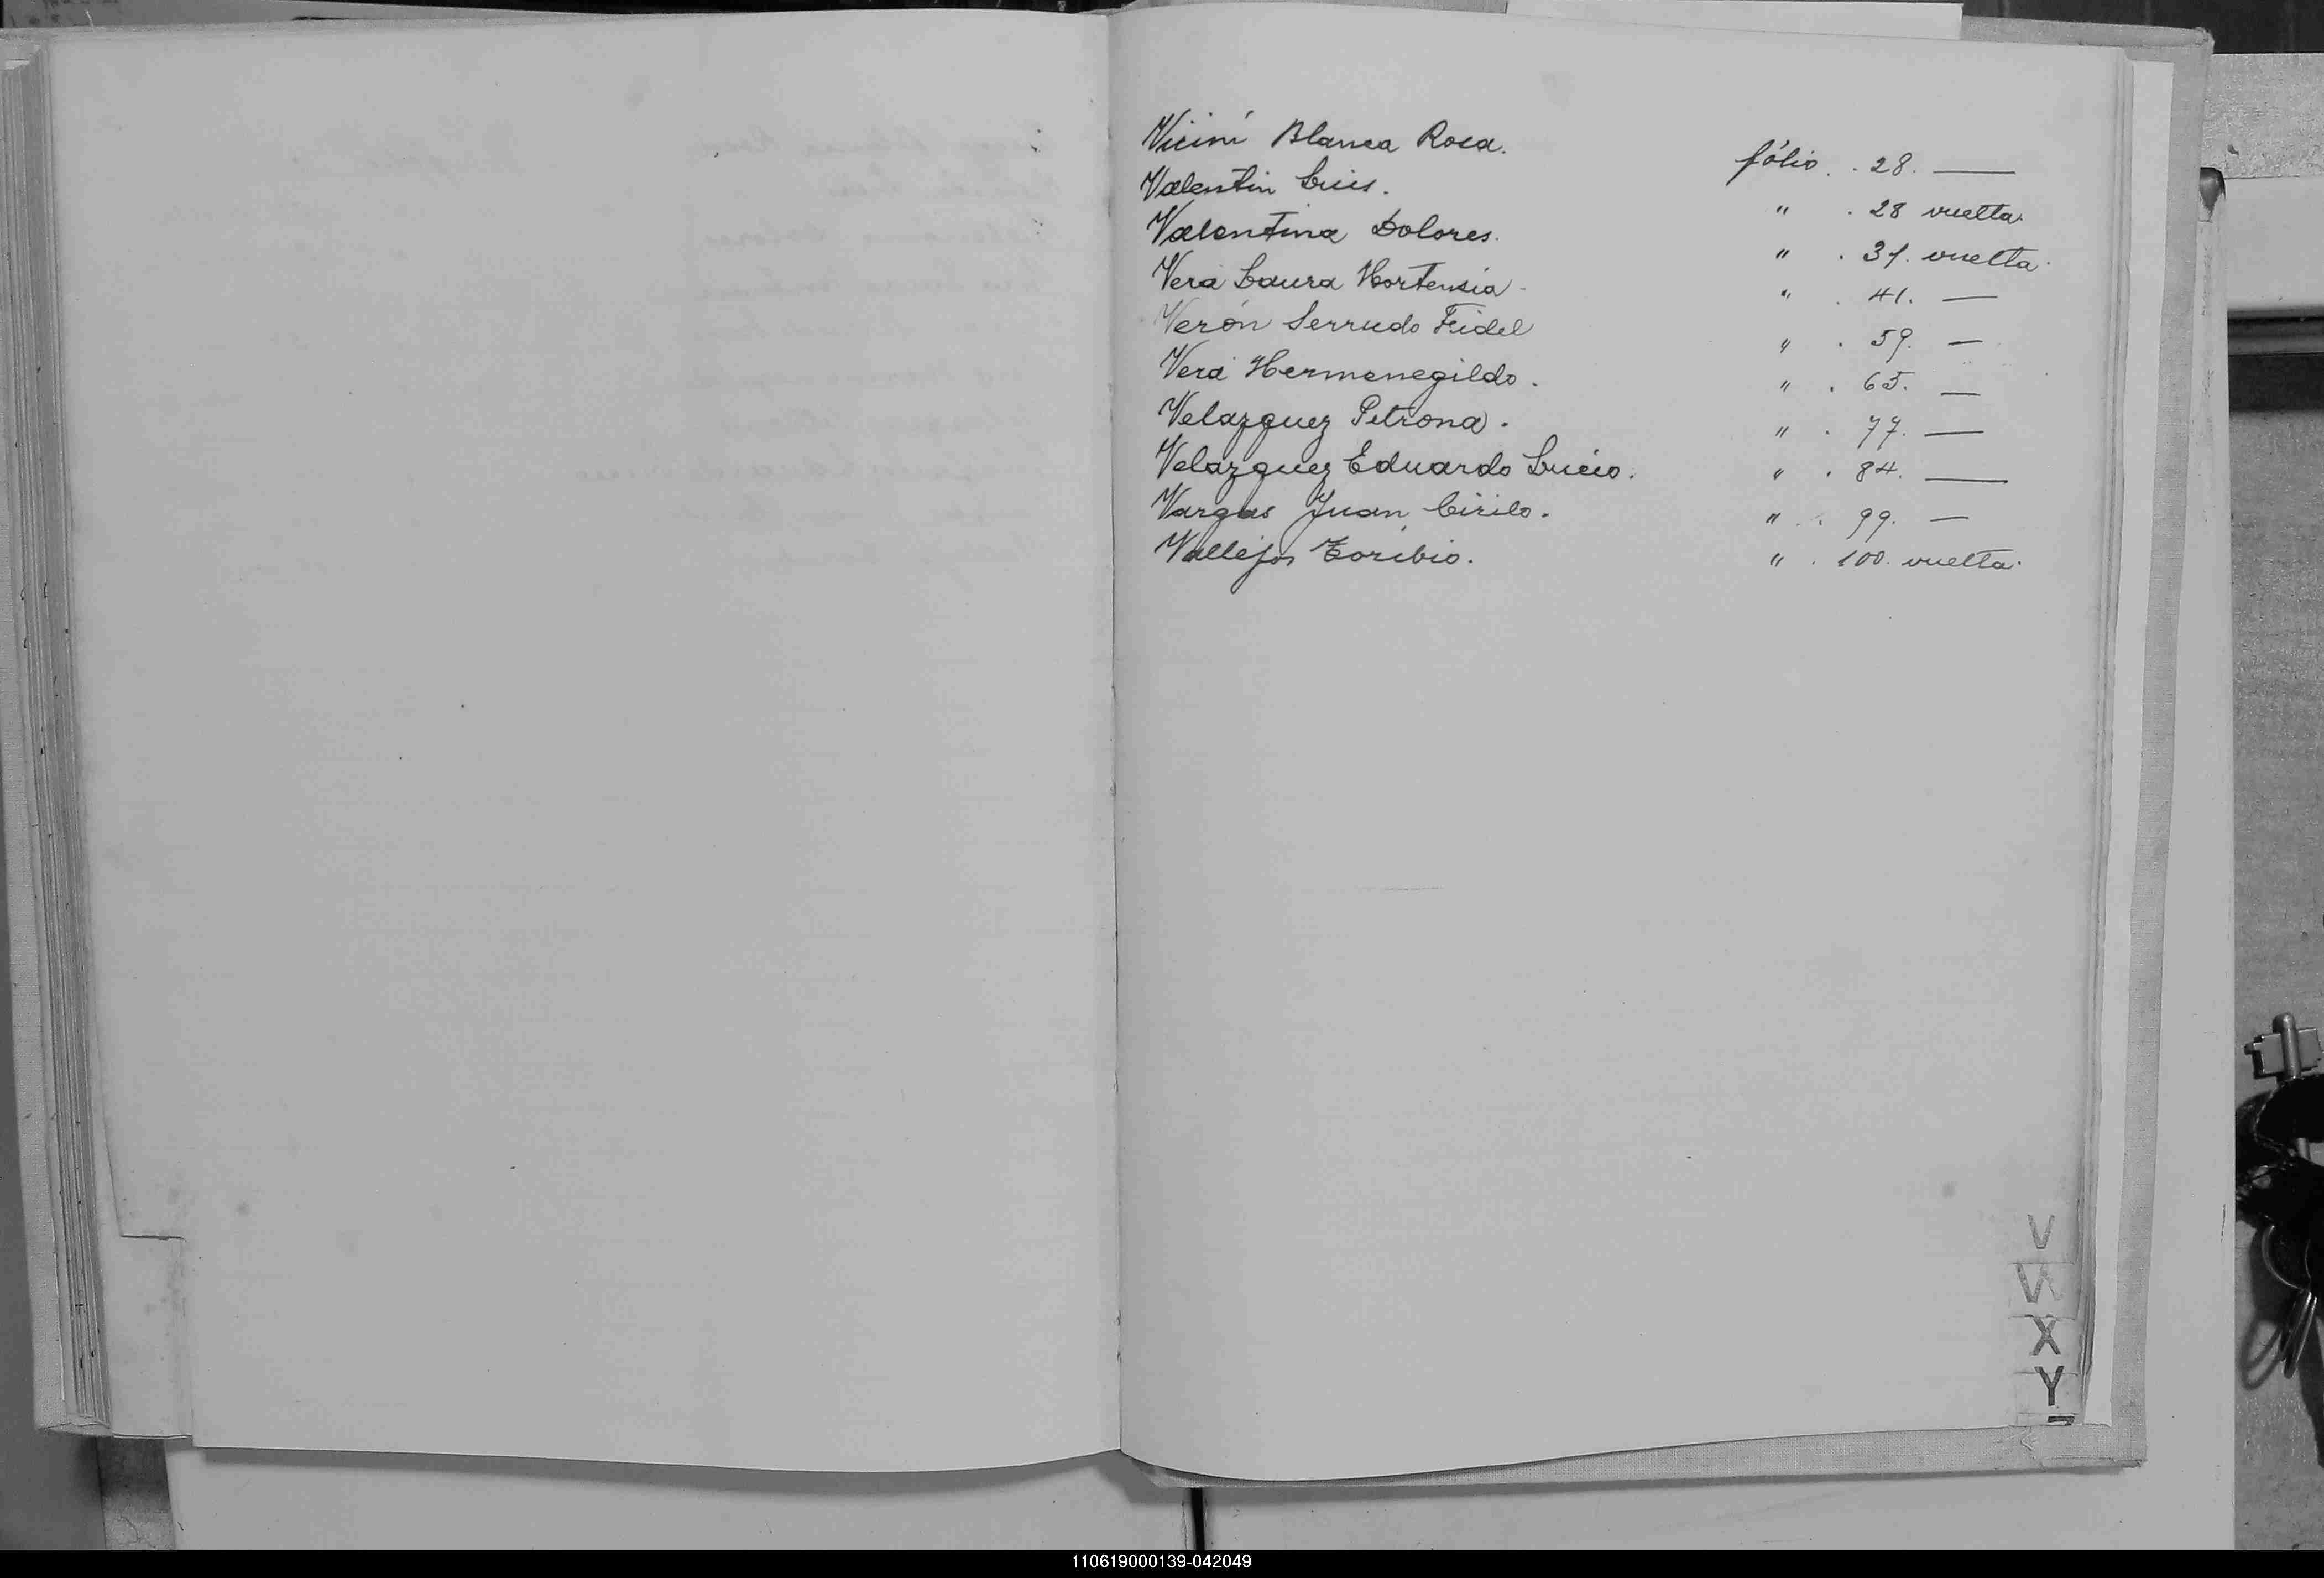 Vicini Blanca Rosa. fólio . 28. —
Valentin Luis. " . 28 vuelta.
Valentina Dolores. " . 31. vuelta.
Vera Laura Hortensia. " . 41. —
Verón Serrudo Fidel " . 59. —
Vera Hermenegildo. " . 65. —
Velazquez Petrona. " . 77. —
Velazquez Eduardo Lucio. " . 84. —
Vargas Juan Cirilo. " . 99. —
Vallejos Toribio. " . 100. vuelta.
V
W
X
Y
110619000139-042049